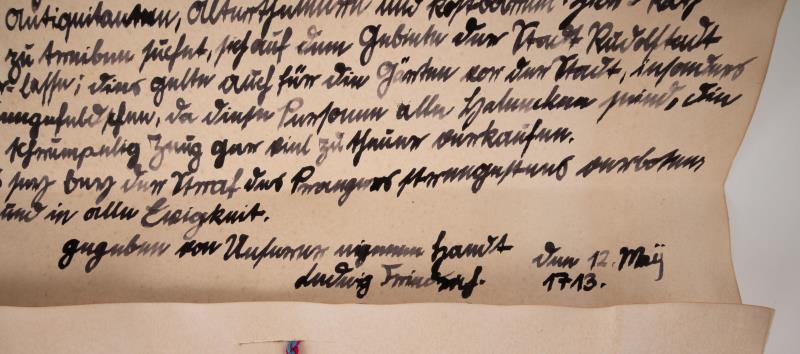 Antiquitäten, Alterthümern und kostbarem
zu treiben suchet, sich auf dem Gebiete der Stadt Rudolstadt
lasse; dies gelte auch für die Gärten vor der Stadt, insonders
da diese Personen alle Halunken seind, die
schrumpelig Zeug gar viel zu theuer verkaufen.
sey bey der Straf des Prangers strengstens verboten
und in alle Ewigkeit.
gegeben von Unserer eigenen Handt den 12. Maÿ
Ludwig Friedrich. 1713.